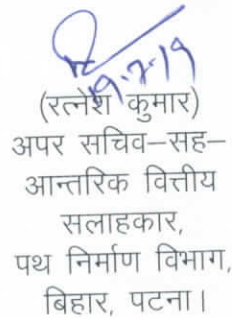 19.7.19
(रत्नेश कुमार)
अपर सचिव–सह–
आन्तरिक वित्तीय
सलाहकार,
पथ निर्माण विभाग,
बिहार, पटना।